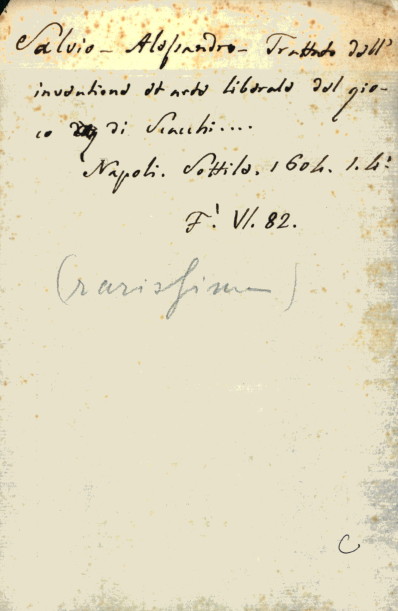 Salvio - Alessandro - Trattato dell'
inventione et arte liberale del gio-
co di Scacchi....
Napoli. Sottile. 1604. 1. 4.
F. VI. 82.
(rarissima)
C